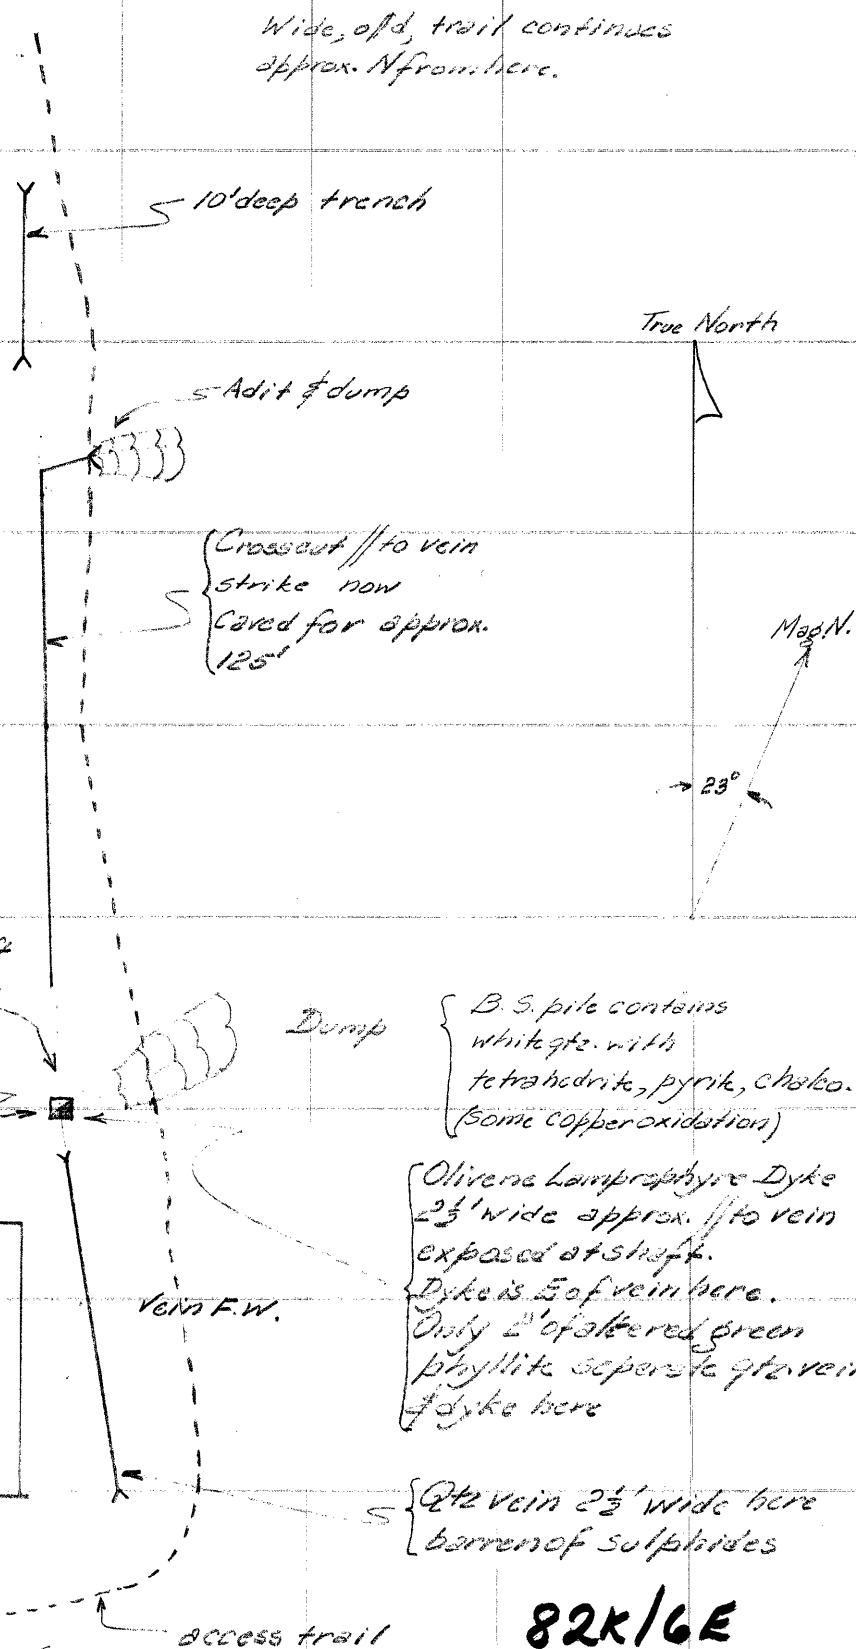 Wide, old, trail continues
approx. N from here.
10' deep trench
True North
Adit & dump
Crosscut // to vein
strike now
Caved for approx.
125'
Mag. N.
23°
Dump
B.S. pile contains
white qtz. with
tetrahedrite, pyrite, chalco.
(some copper oxidation)
Olivene Lamprophyre Dyke
2½' wide approx. // to vein
exposed at shaft.
Dyke is E of vein here.
Only 2' of altered green
phyllite seperate qtz. vein
& dyke here
Vein F.W.
Qtz vein 2½' wide here
barren of sulphides
access trail
82K/6E